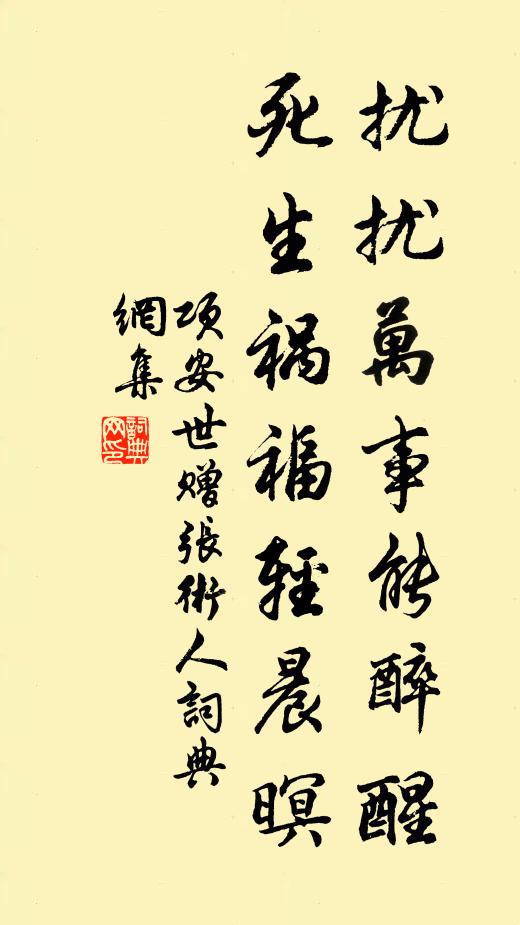 扰扰萬事能醉醒
死生祸福輕晨暝
项安世赠張術人詞典
網集
詞典
网印